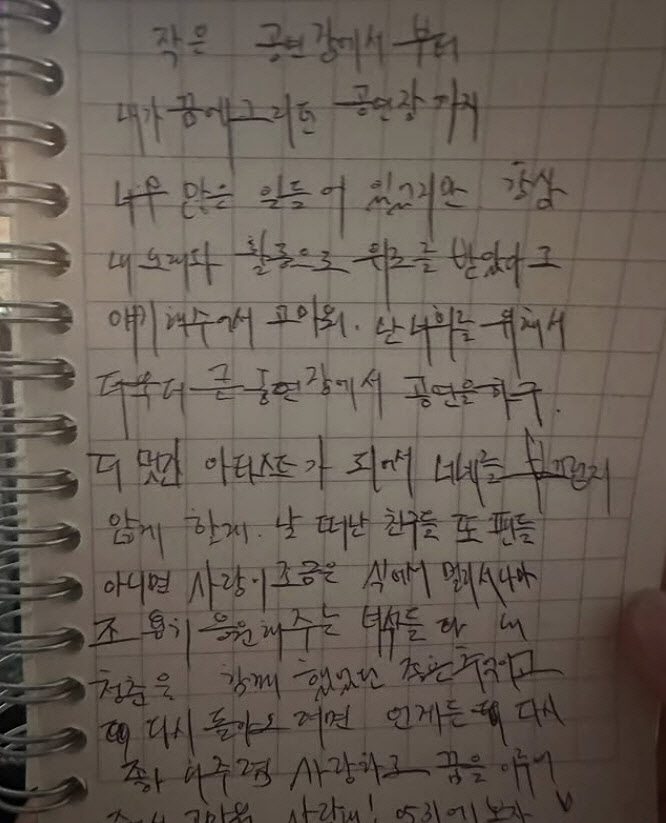 작은 공연장에서 부터
내가 꿈에 그리던 공연장 까지
너무 많은 일들이 있었지만 항상
내 노래와 활동으로 위로를 받았다고
얘기해주어서 고마워. 난 너희를 위해서
더욱 더 큰 공연장에서 공연을 하구.
더 멋진 아티스트가 되어서 너네를 부끄럽지
않게 할게. 날 떠난 친구들 또 팬들
아니면 사랑이 조금은 식어서 멀리서나마
조용히 응원해주는 녀석들 다 내
청춘을 함께 했었던 좋은 추억이고
다시 돌아오려면 언제든 다시
좋아 해주고 사랑하고 꿈을 이루어
고마워 사랑해! 0531에 보자